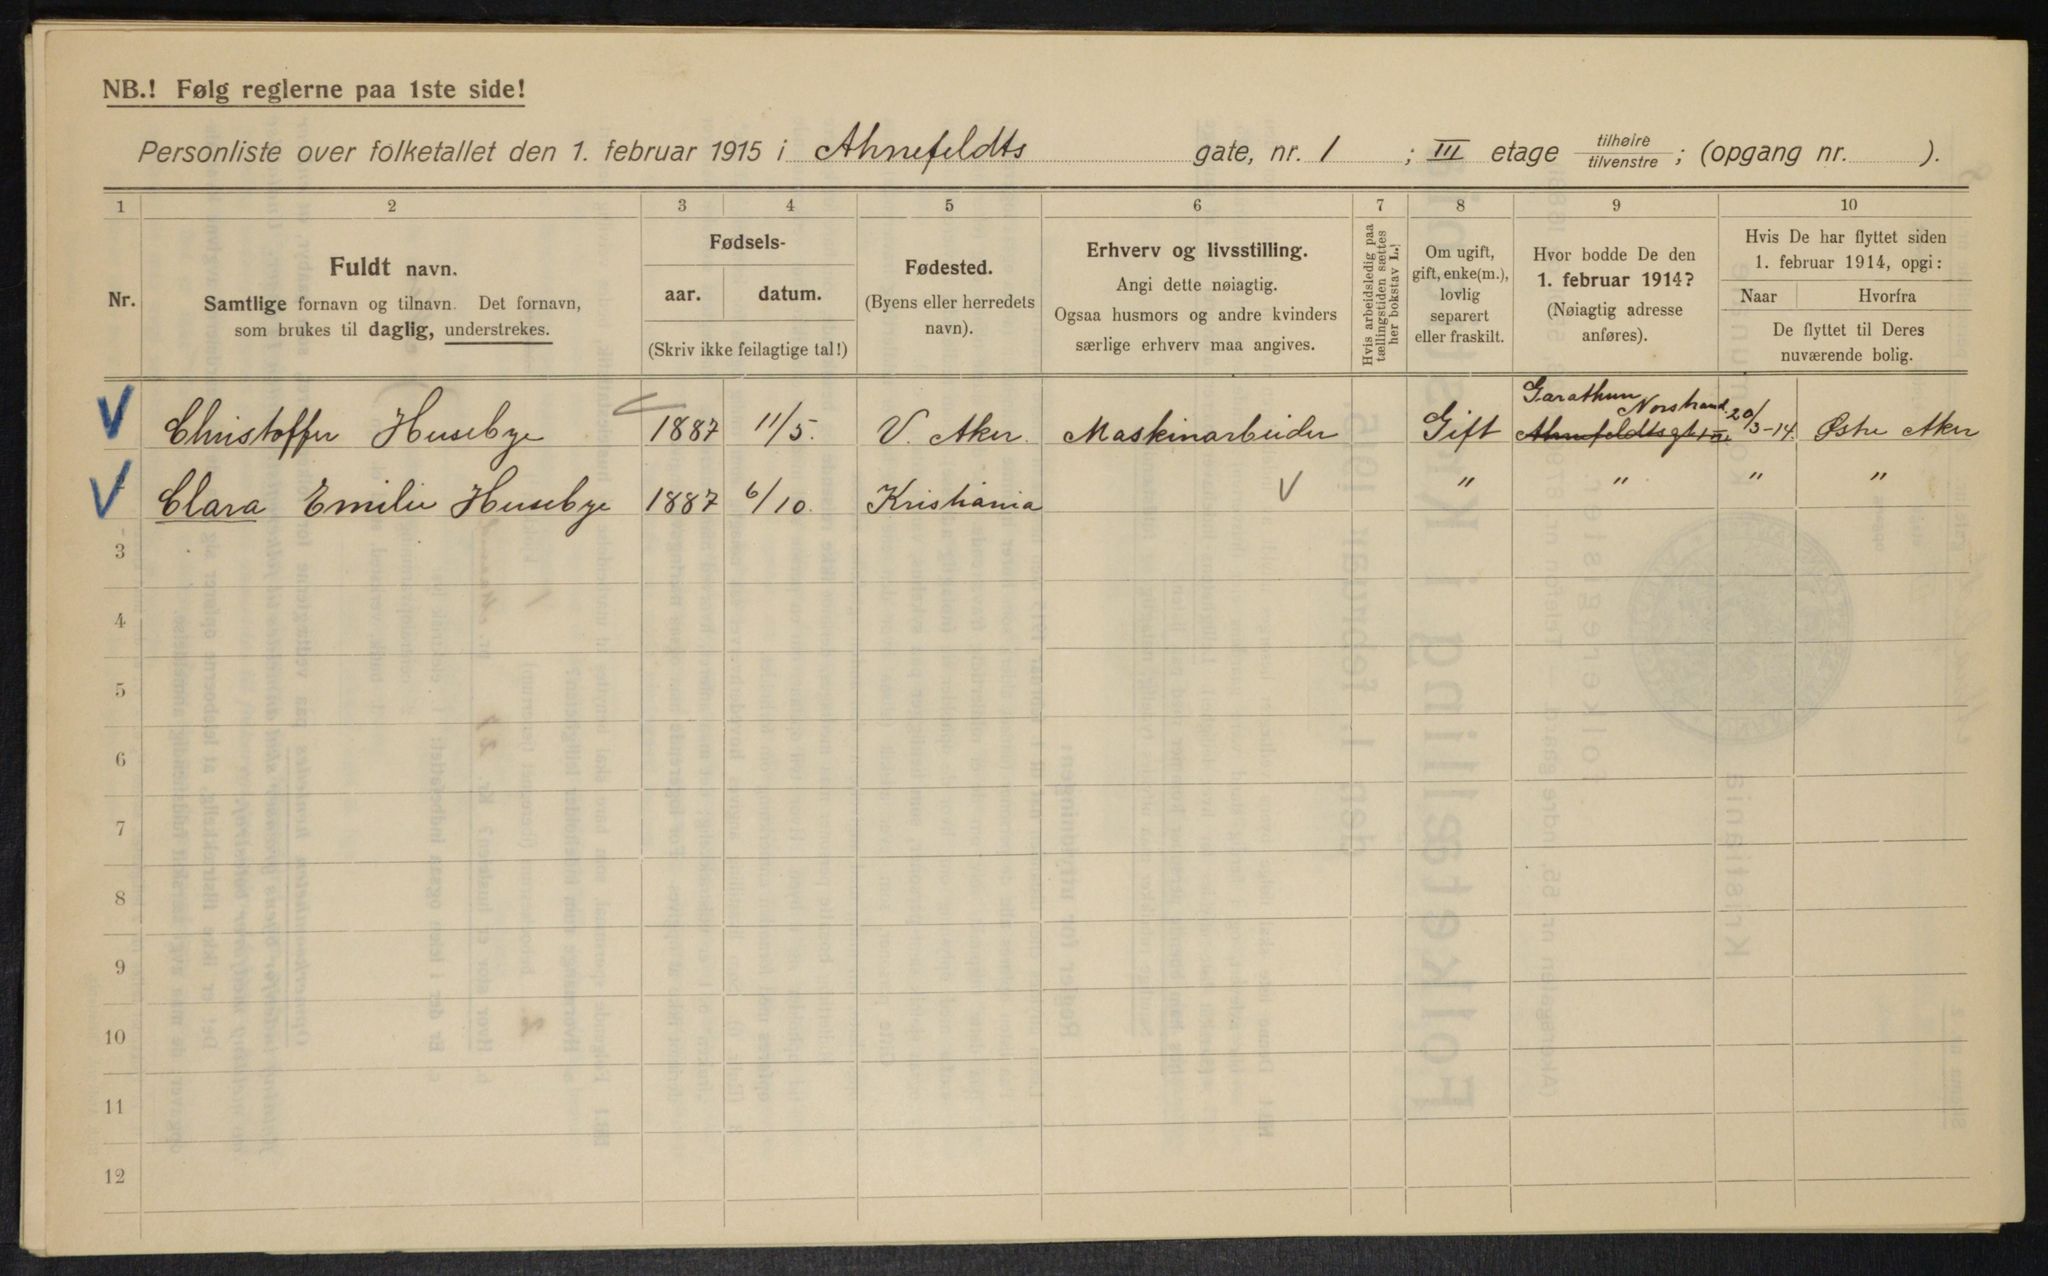 NB.! Følg reglerne paa 1ste side!
Personliste over folketallet den 1. februar 1915 i Ahnefeldts gate, nr. 1 ; III etage tilhøire / tilvenstre ; (opgang nr. ).
1 2 3 4 5 6 7 8 9 10
Nr.
Fuldt navn.
Samtlige fornavn og tilnavn. Det fornavn,
som brukes til daglig, understrekes.
Fødsels-
aar. datum.
(Skriv ikke feilagtige tal!)
Fødested.
(Byens eller herredets
navn).
Erhverv og livsstilling.
Angi dette nøiagtig.
Ogsaa husmors og andre kvinders
særlige erhverv maa angives.
Hvis arbeidsledig paa
tællingstiden sættes
her bokstav L.
Om ugift,
gift, enke(m.),
lovlig
separert
eller fraskilt.
Hvor bodde De den
1. februar 1914?
(Nøiagtig adresse
anføres).
Hvis De har flyttet siden
1. februar 1914, opgi:
Naar Hvorfra
De flyttet til Deres
nuværende bolig.
Christoffer Husebye 1887 11/5. V. Aker. Maskinarbeider Gift Norstrand Ahnefeldtsgt 1 III. 20/3-14. Østre Aker
Clara Emilie Husebye 1887 6/10. Kristiania V " " " "
3
4
5
6
7
8
9
10
11
12